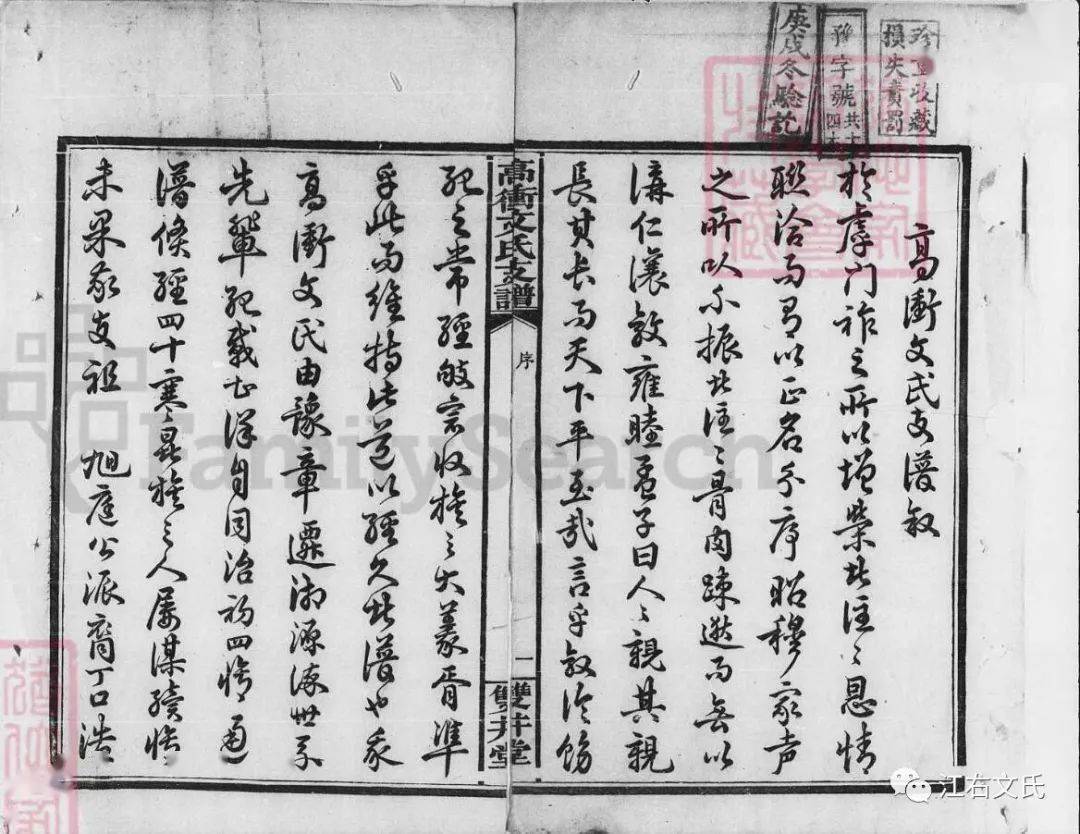 珍重收藏
損失責罰
豫字號
庚戌冬驗訖
高衝文氏支譜敘
於虖門祚之所以增榮者往〻恩情
聯洽而有以正名分序昭穆家声
之所以不振者往〻骨肉疎邈而無以
講仁讓敦雍睦孟子曰人〻親其親
長其長而天下平至哉言乎敘倫飭
高衝文氏支譜
序
一
雙井堂
紀之常經敬宗收族之大義胥準
乎此而維持此道以經久者譜也我
高衝文氏由豫章遷湖源流世系
先輩記載甚詳自同治初四脩通
譜倏經四十寒暑族之人屢謀續脩
未果我支祖 旭庭公派裔丁口浩
FamilySearch
江右文氏